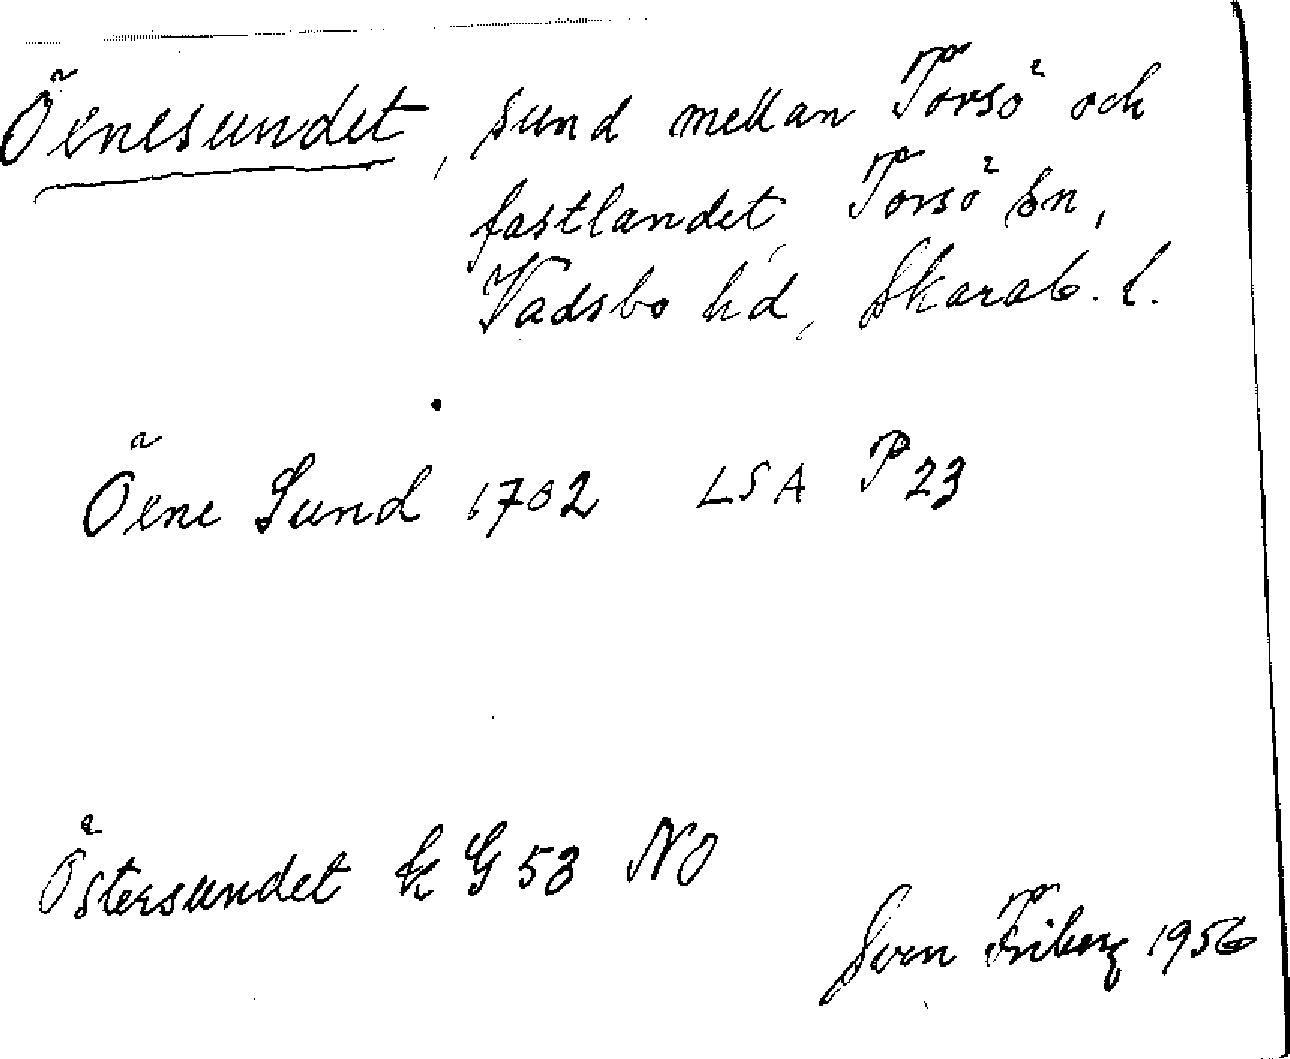 Öenesundet, sund mellan Torsö och
fastlandet, Torsö sn,
Vadsbo hd, Skarab. l.
Öene Sund 1702 LSA P 23
Östersundet EK G 53 NO
Sven Friberg 1956